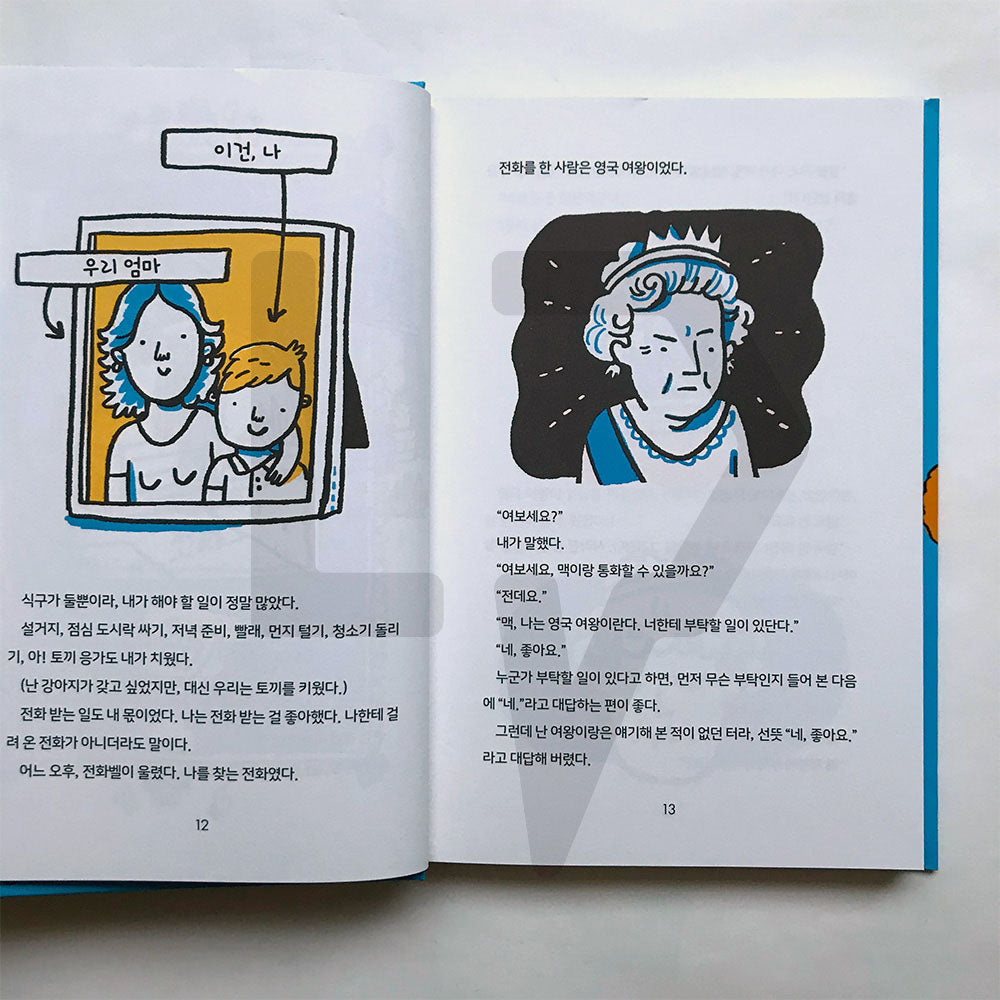 이건, 나
우리 엄마
식구가 둘뿐이라, 내가 해야 할 일이 정말 많았다.
설거지, 점심 도시락 싸기, 저녁 준비, 빨래, 먼지 털기, 청소기 돌리
기, 아! 토끼 응가도 내가 치웠다.
(난 강아지가 갖고 싶었지만, 대신 우리는 토끼를 키웠다.)
전화 받는 일도 내 몫이었다. 나는 전화 받는 걸 좋아했다. 나한테 걸
려 온 전화가 아니더라도 말이다.
어느 오후, 전화벨이 울렸다. 나를 찾는 전화였다.
12
전화를 한 사람은 영국 여왕이었다.
“여보세요?”
내가 말했다.
“여보세요, 맥이랑 통화할 수 있을까요?”
“전데요.”
“맥, 나는 영국 여왕이란다. 너한테 부탁할 일이 있단다.”
“네, 좋아요.”
누군가 부탁할 일이 있다고 하면, 먼저 무슨 부탁인지 들어 본 다음
에 “네.”라고 대답하는 편이 좋다.
그런데 난 여왕이랑은 얘기해 본 적이 없던 터라, 선뜻 “네, 좋아요.”
라고 대답해 버렸다.
13